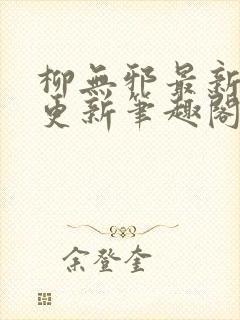 柳無邪最新
更新筆趣閣
余登奎